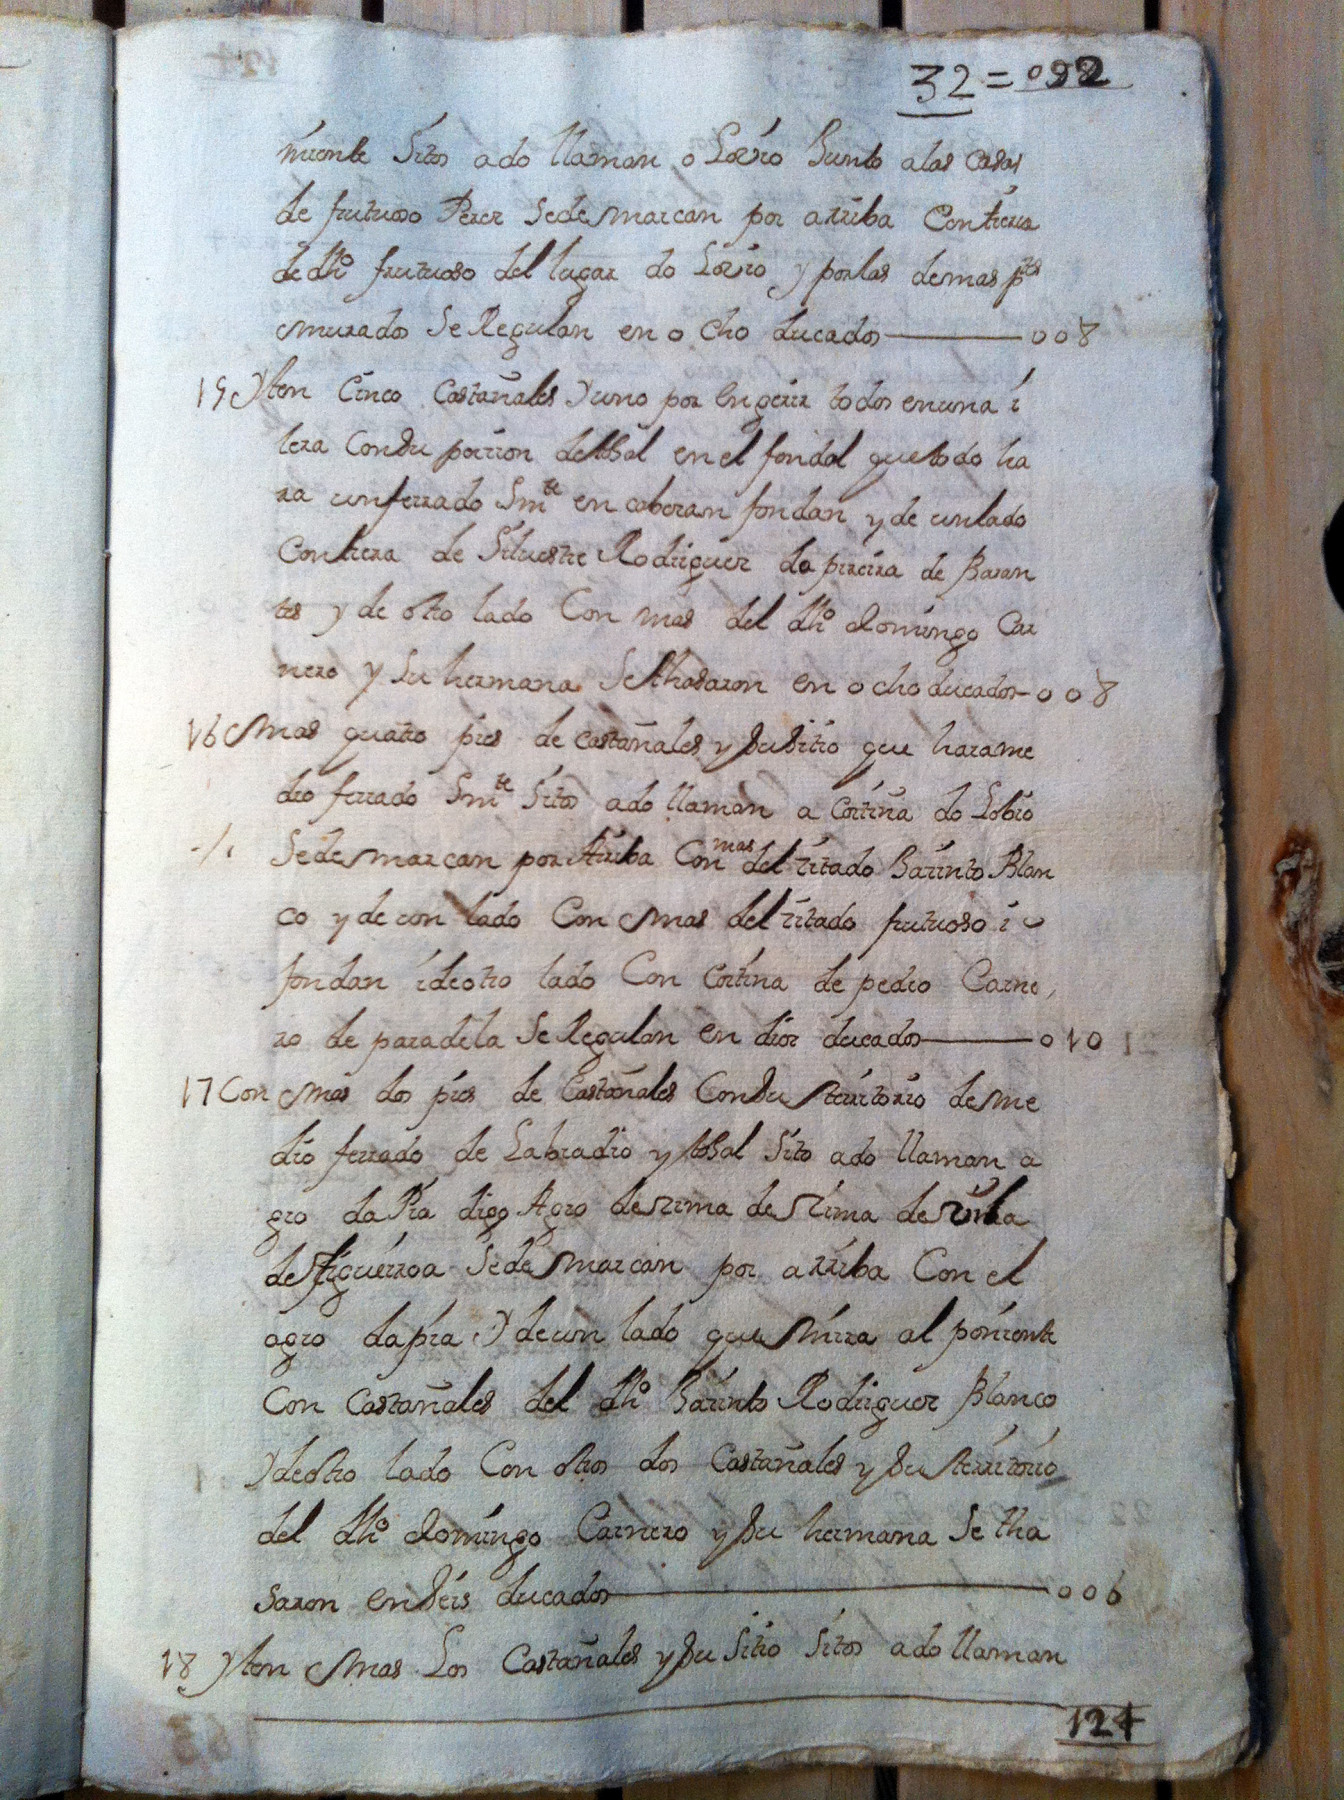 32 = 092
miente Sitos ado llaman o Lobio Junto alas Casas
de frutuoso Perez Sedemarcan por arriba Contierra
de dho frutuoso del lugar do Lobio y porlas demas ptes
murado Se Regulan en ocho ducados 008
15 Yten Cinco Castañales y uno por engerir todos enuna i
lera Consu porcion deltosal en el fondal quetodo ha
ra un ferrado Smte en caberan fondan y de unlado
Contierra de Silvestre Rodriguez da pereira de Baran
tes y de otro lado Con mas del dho domingo Car
nero y Su hermana Sethasaron en ocho ducados 008
16 Mas quatro pies de castañales y Susitio que harame
dio ferrado Smte Sitos ado llaman a Cortiña do Lobio
Sedemarcan por Arriba Con mas del zitado Jazinto Blan
co y de un lado Con Mas del zitado frutuoso i
fondan ideotro lado Con Cortina de pedro Carne
ro de paradela Se Regulan en diez ducados 010
17 Con mas dos pies de Castañales Consu territorio deme
dio ferrado de Labradio y tosal Sito ado llaman a
gro da Pia digo Agro dezima de zima de
de figueiroa Sede Marcan por arriba Con el
agro dapia y deun lado que Mira al poniente
Con Castañales del dho Jazinto Rodriguez Blanco
y deotro lado Con otros dos Castañales y Su territorio
del dho domingo Carnero y Su hermana Se tha
saron en Seis ducados 006
18 Yten Mas Los Castañales y Su Sitio Sitos ado llaman
124